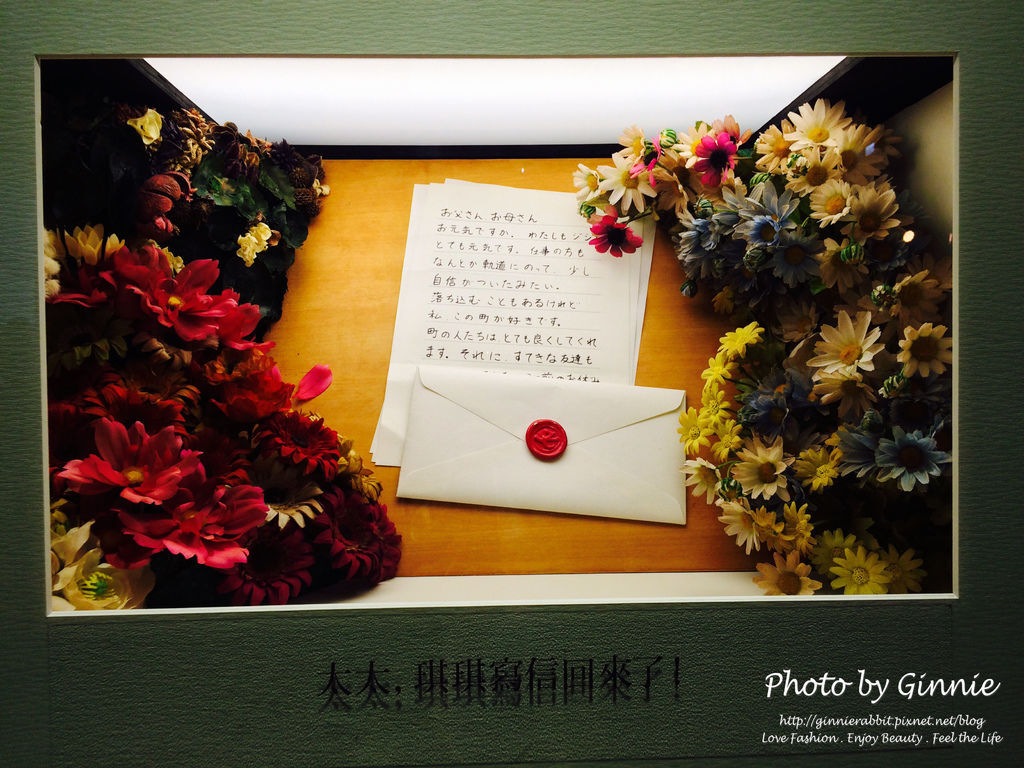 お父さん、お母さん
お元気ですか。わたしもジジ
とても元気です。仕事の方も
なんとか軌道にのって、少し
自信がついたみたい。
落ち込むこともあるけれど
私、この町が好きです。
町の人たちは、とても良くしてくれ
ます。それに、すてきな友達も
前のお休み
太太,琪琪寫信回來了!
Photo by Ginnie
http://ginnierabbit.pixnet.net/blog
Love Fashion . Enjoy Beauty . Feel the Life